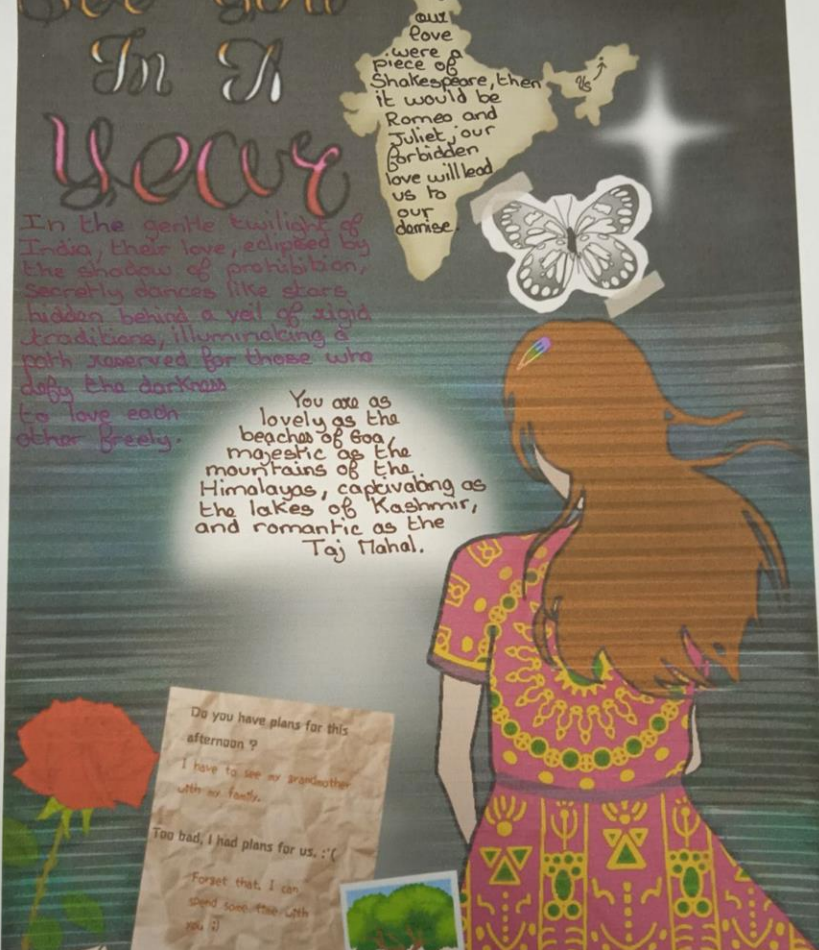 See You
In A
Year
our
love
were a
piece of
Shakespeare, then
it would be
Romeo and
Juliet, our
forbidden
love will lead
us to
our
demise.
Us
In the gentle twilight of
India, their love, eclipsed by
the shadow of prohibition,
secretly dances like stars
hidden behind a veil of rigid
traditions, illuminating a
path reserved for those who
defy the darkness
to love each
other freely.
You are as
lovely as the
beaches of Goa,
majestic as the
mountains of the
Himalayas, captivating as
the lakes of Kashmir,
and romantic as the
Taj Mahal.
Do you have plans for this
afternoon ?
I have to see my grandmother
with my family.
Too bad, I had plans for us. :'(
Forget that. I can
spend some time with
you :)